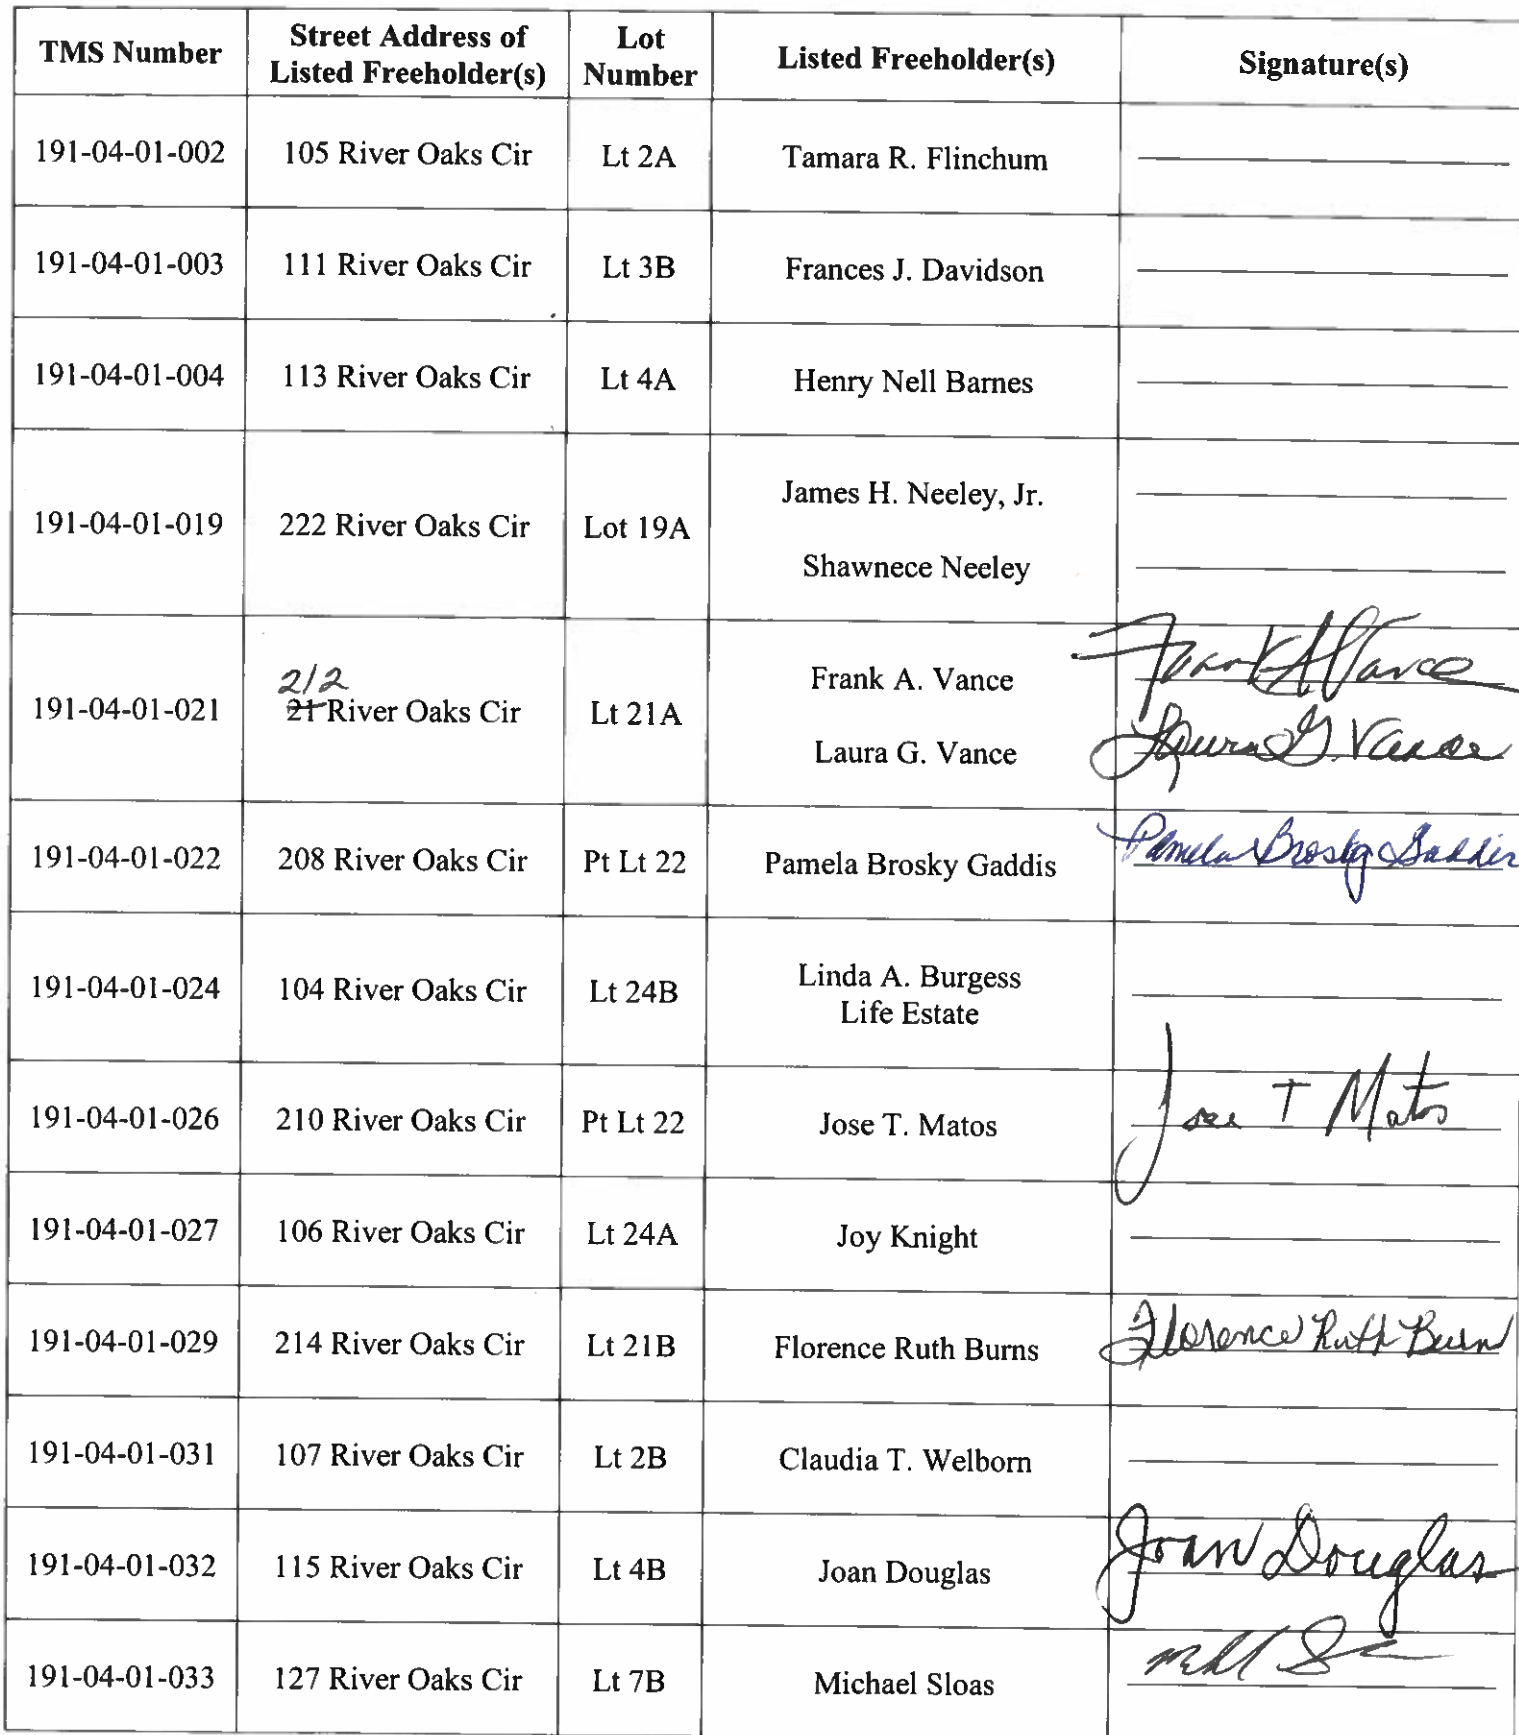 TMS Number
Street Address of
Listed Freeholder(s)
Lot
Number
Listed Freeholder(s)
Signature(s)
191-04-01-002 105 River Oaks Cir Lt 2A Tamara R. Flinchum
191-04-01-003 111 River Oaks Cir Lt 3B Frances J. Davidson
191-04-01-004 113 River Oaks Cir Lt 4A Henry Nell Barnes
191-04-01-019 222 River Oaks Cir Lot 19A
James H. Neeley, Jr.
Shawnece Neeley
212
191-04-01-021 21 River Oaks Cir Lt 21A
Frank A. Vance Frank A Vance
Laura G. Vance Laura G. Vance
191-04-01-022 208 River Oaks Cir Pt Lt 22 Pamela Brosky Gaddis Pamela Brosky Gaddis
191-04-01-024 104 River Oaks Cir Lt 24B
Linda A. Burgess
Life Estate
191-04-01-026 210 River Oaks Cir Pt Lt 22 Jose T. Matos Jose T Matos
191-04-01-027 106 River Oaks Cir Lt 24A Joy Knight
191-04-01-029 214 River Oaks Cir Lt 21B Florence Ruth Burns Florence Ruth Burn
191-04-01-031 107 River Oaks Cir Lt 2B Claudia T. Welborn
191-04-01-032 115 River Oaks Cir Lt 4B Joan Douglas Joan Douglas
191-04-01-033 127 River Oaks Cir Lt 7B Michael Sloas